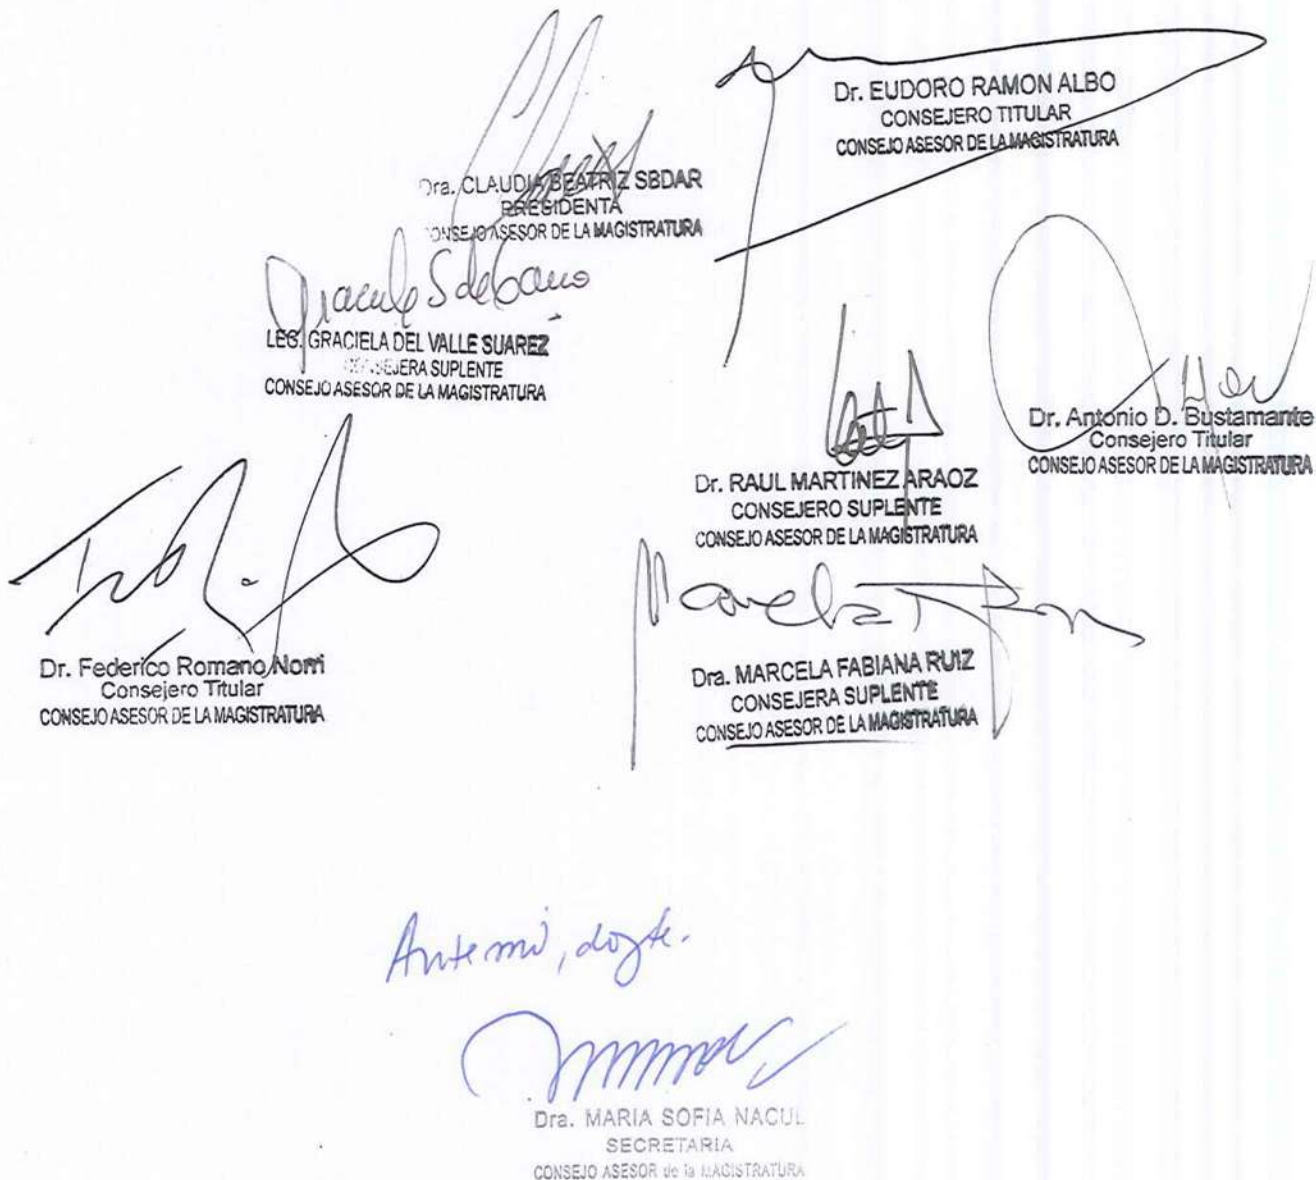 Dr. EUDORO RAMON ALBO
CONSEJERO TITULAR
CONSEJO ASESOR DE LA MAGISTRATURA
Dra. CLAUDIA BEATRIZ SBDAR
PRESIDENTA
CONSEJO ASESOR DE LA MAGISTRATURA
LEG. GRACIELA DEL VALLE SUAREZ
CONSEJERA SUPLENTE
CONSEJO ASESOR DE LA MAGISTRATURA
Dr. Antonio D. Bustamante
Consejero Titular
CONSEJO ASESOR DE LA MAGISTRATURA
Dr. RAUL MARTINEZ ARAOZ
CONSEJERO SUPLENTE
CONSEJO ASESOR DE LA MAGISTRATURA
Dr. Federico Romano Norri
Consejero Titular
CONSEJO ASESOR DE LA MAGISTRATURA
Marcela
Dra. MARCELA FABIANA RUIZ
CONSEJERA SUPLENTE
CONSEJO ASESOR DE LA MAGISTRATURA
Ante mí, doy fe.
Dra. MARIA SOFIA NACUL
SECRETARIA
CONSEJO ASESOR de la MAGISTRATURA